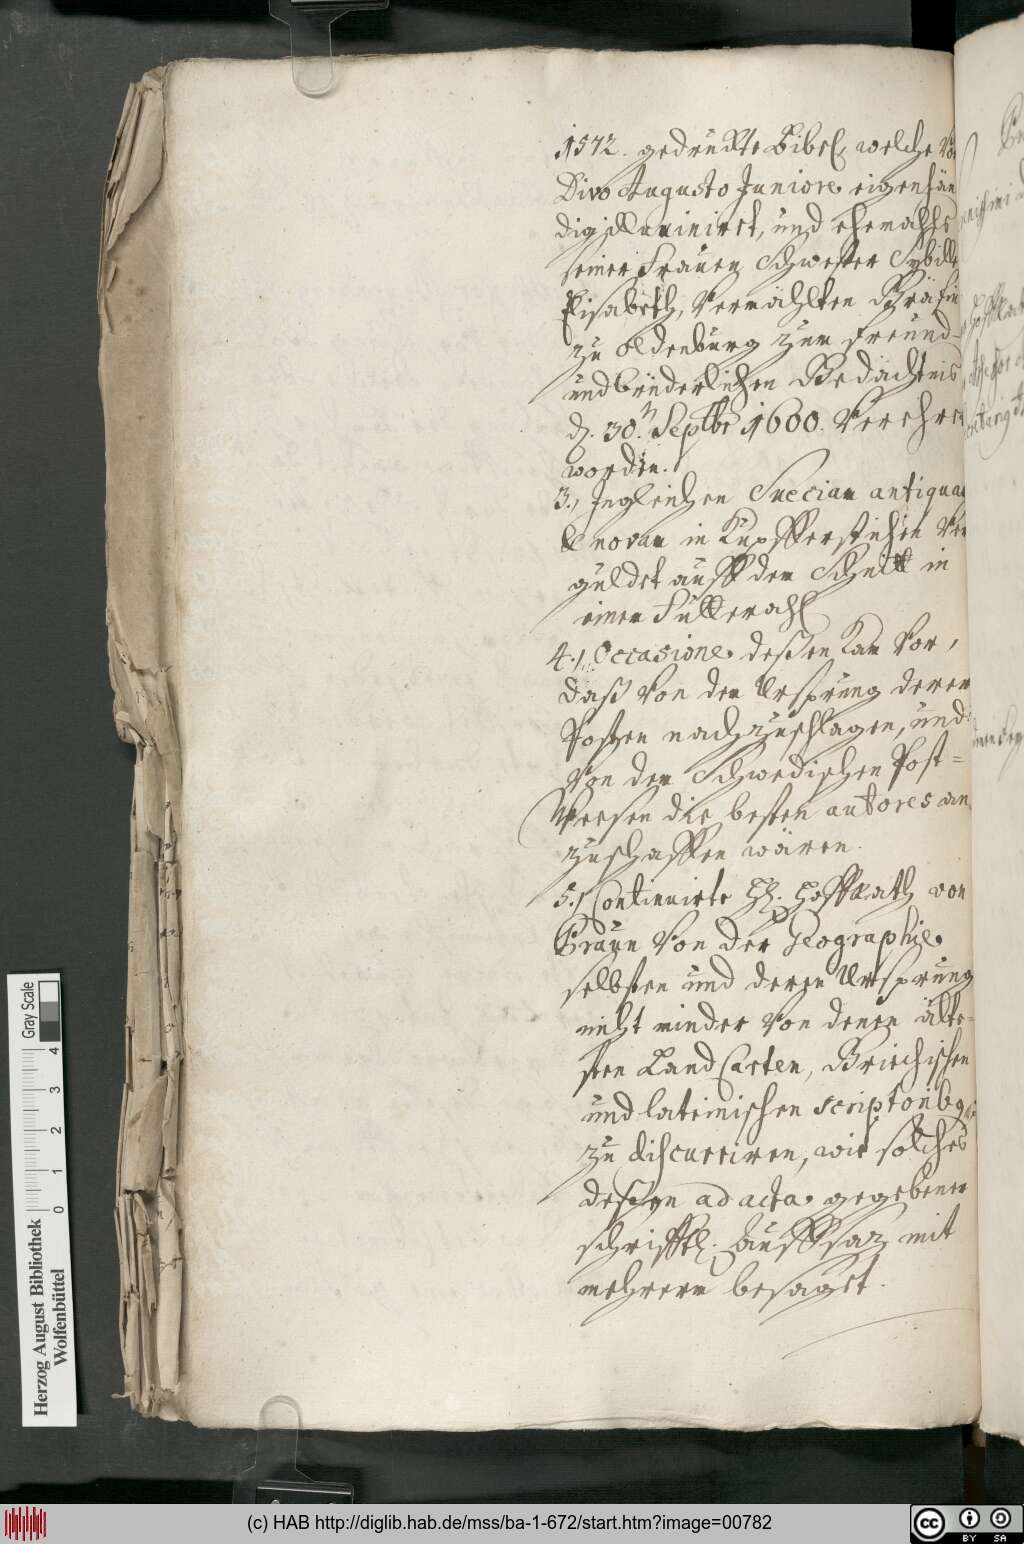 1572. gedruckte Bibel, welche Von
Divo Augusto Juniore eigenhän
dig illuminiret, und ehemahls
seiner Frauen Schwester Sybille
Elisabeth, Vermählten Gräfin
zu Oldenburg zum freund-
und brüderlichen Gedächtnis
d. 30.n Septbr 1600. Verehret
worden.
3., Ingleichen Sueciam antiquam
& novam in Kupfferstichen Ver
guldet auff dem Schnitt in
einem Futterahl
4., Occasione deßen kam Vor,
daß Von dem Ursprung derer
Posten nachzuschlagen, und
Von dem Schwedischen Post=
Weesen die besten autores an
zuschaffen wären.
5., Continuirte H. Hoffrath von
Braun Von der Geographie
selbsten und deren Ursprung
nicht minder Von denen älte=
sten Land Carten, Griechischen
und lateinischen scriptoribq
zu discurriren, wie solches
deßen ad acta gegebener
schrifftl. Auffsaz mit
mehrern besaget.
Herzog August Bibliothek
Wolfenbüttel
0 1 2 3 4
Gray Scale
(c) HAB http://diglib.hab.de/mss/ba-1-672/start.htm?image=00782
cc BY SA